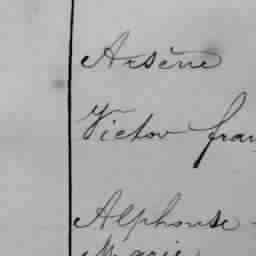 Arsène
Victor fran
Alphonse
Marie